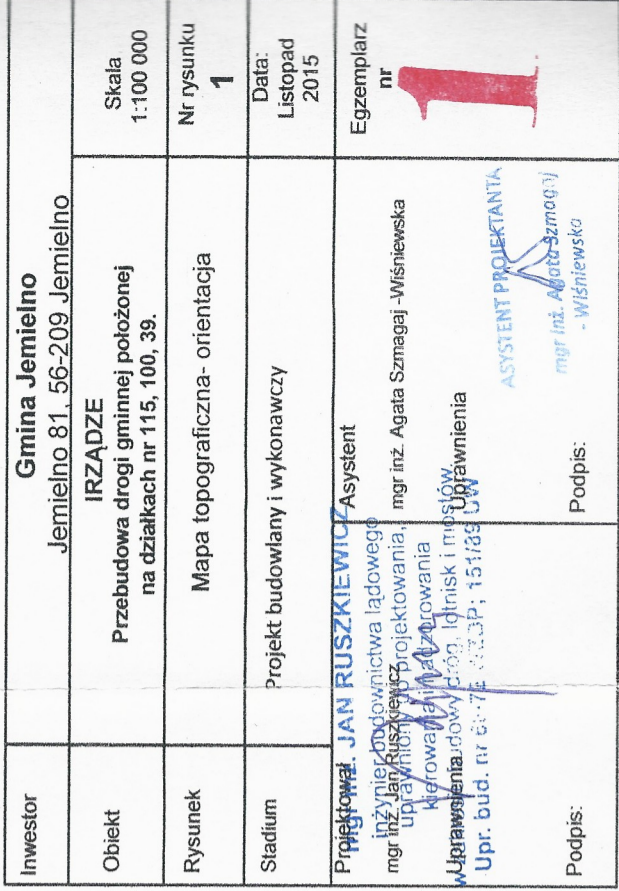 Inwestor
Gmina Jemielno
Jemielno 81, 56-209 Jemielno
Obiekt
IRZĄDZE
Przebudowa drogi gminnej położonej
na działkach nr 115, 100, 39.
Skala
1:100 000
Rysunek
Mapa topograficzna- orientacja
Nr rysunku
1
Stadium
Projekt budowlany i wykonawczy
Data:
Listopad
2015
Projektował
mgr inż. Jan Ruszkiewicz
Uprawnienia
Podpis:
mgr inż. JAN RUSZKIEWICZ
inżynier budownictwa lądowego
uprawniony do projektowania,
kierowania i nadzorowania
budowy dróg, lotnisk i mostów
Upr. bud. nr 151/89 UW
Asystent
mgr inż. Agata Szmagaj -Wiśniewska
Uprawnienia
Podpis:
ASYSTENT PROJEKTANTA
mgr inż. Agata Szmagaj
- Wiśniewska
Egzemplarz
nr
1